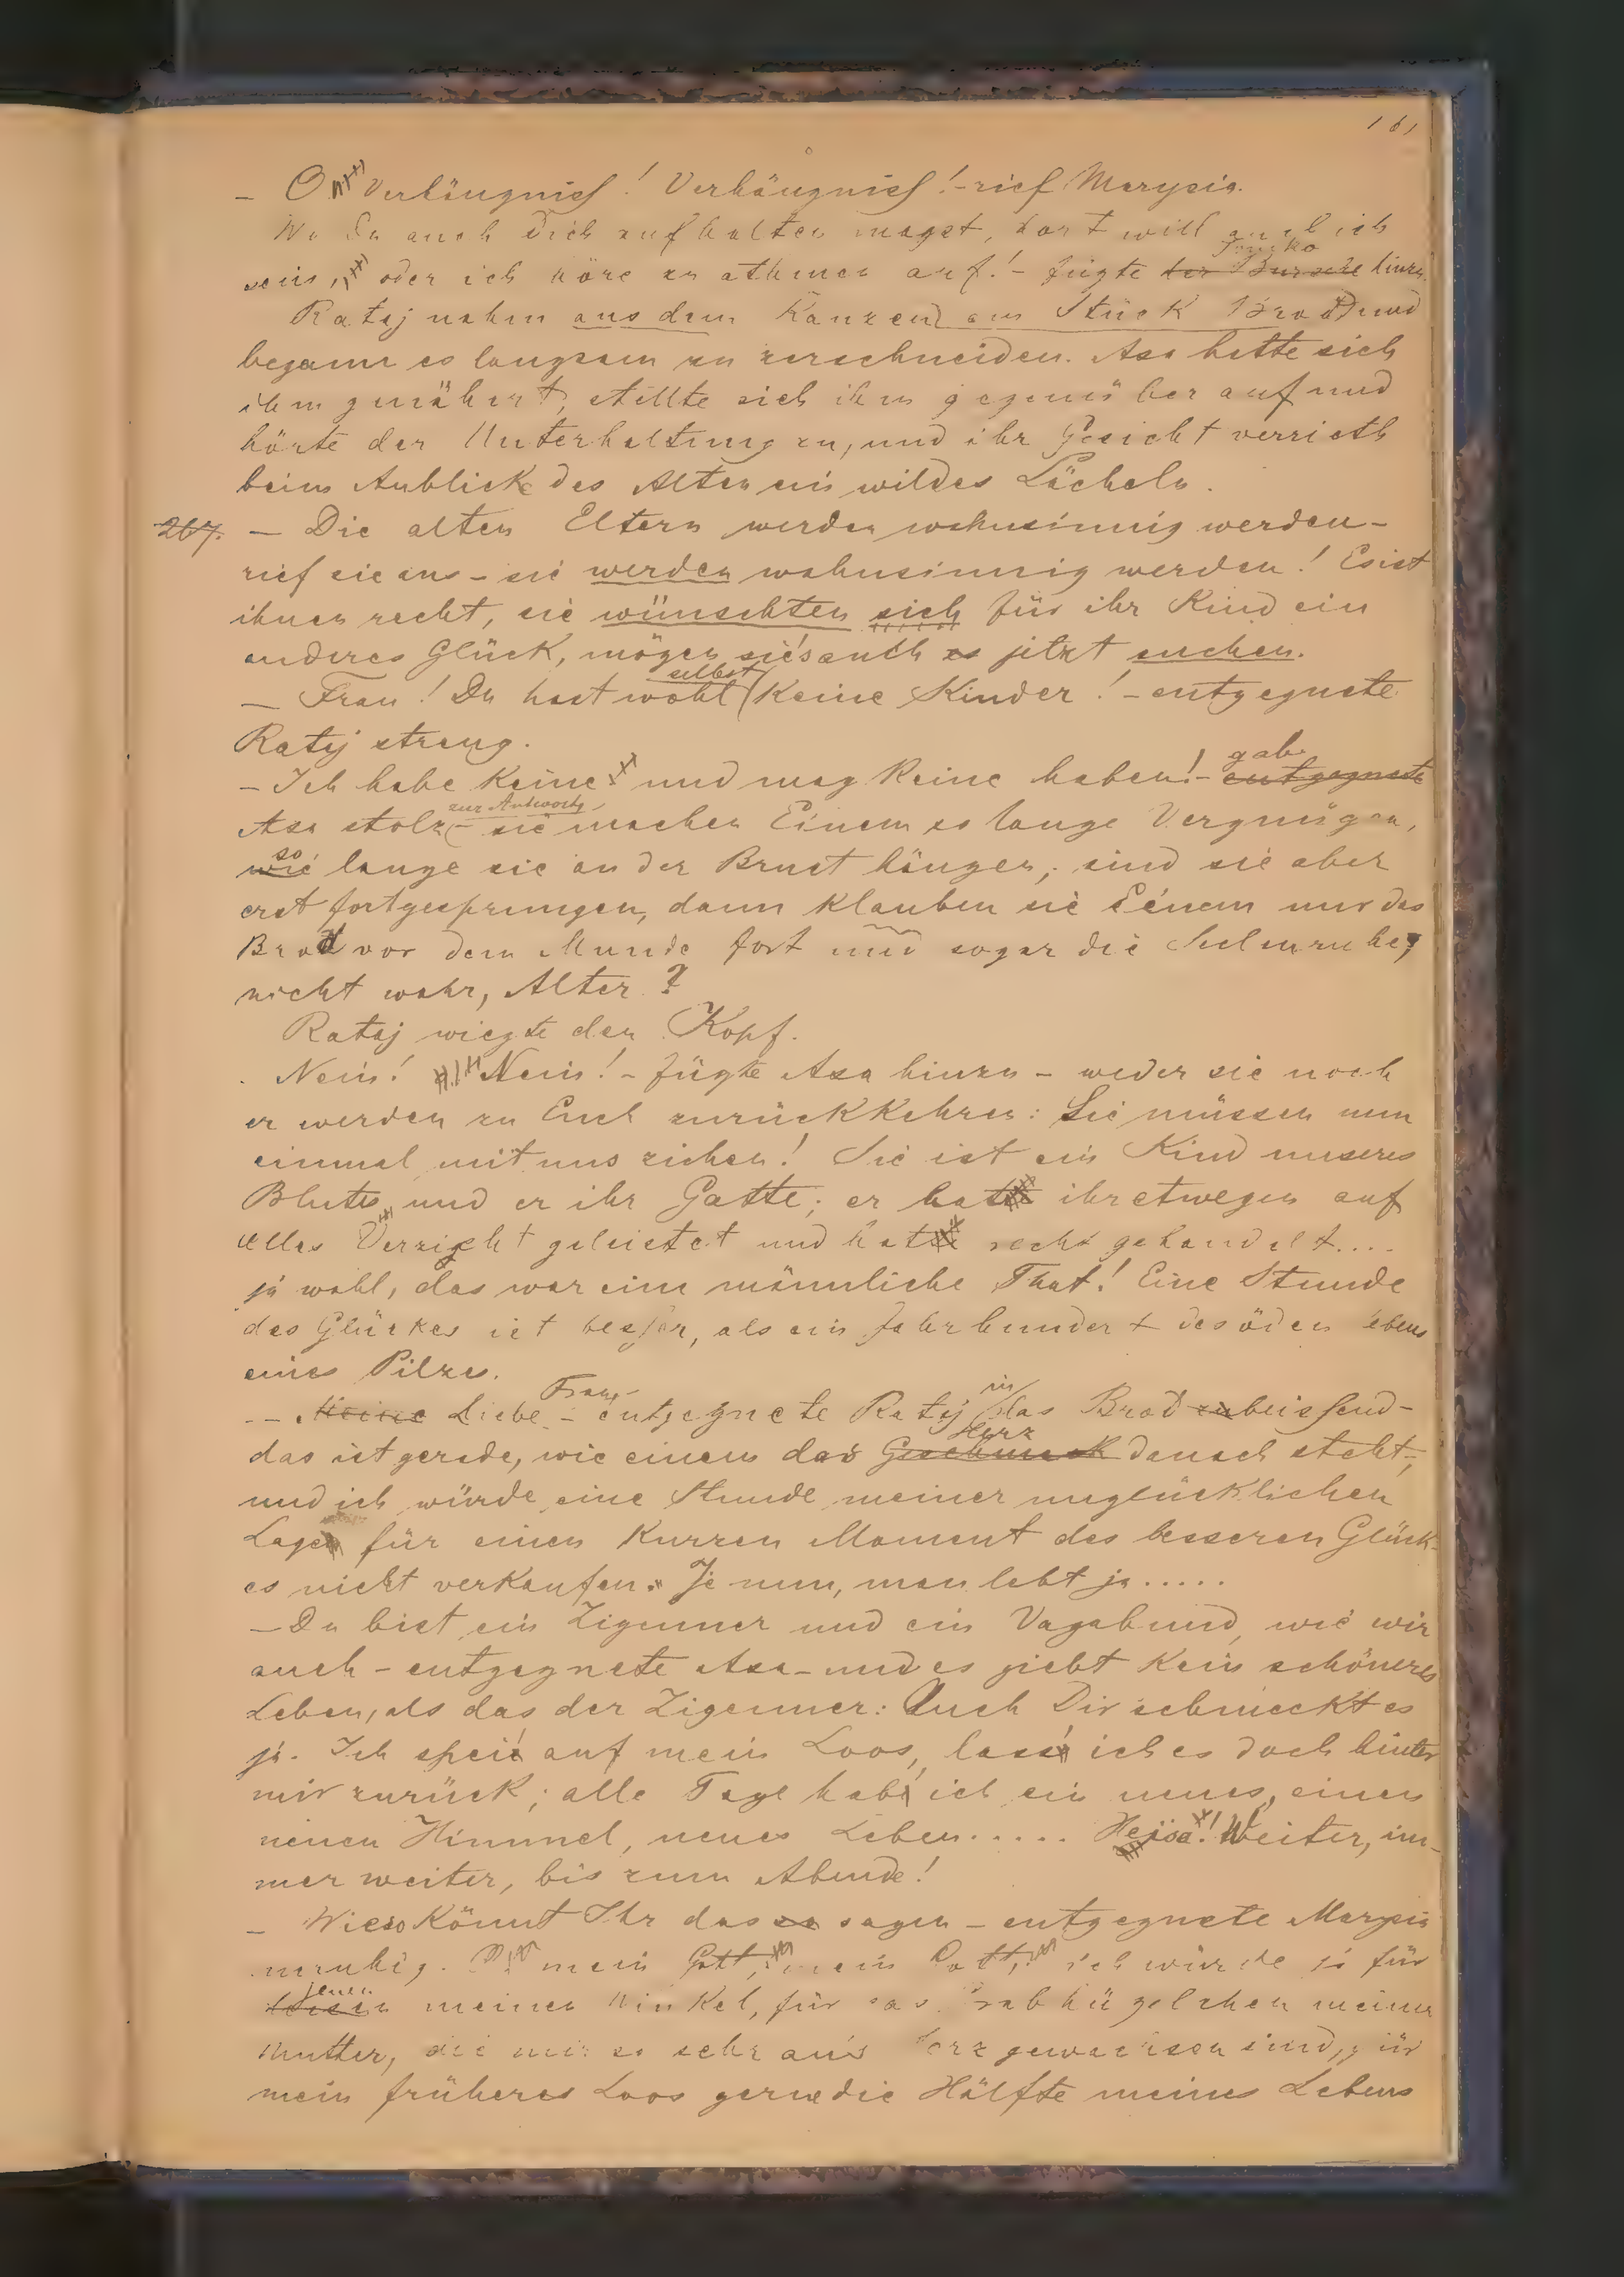 161
— O Verhängniß! Verhängniß! – rief Marysia.
Wo Du auch Dich aufhalten magst, dort will auch ich
sein, oder ich höre zu athmen auf! – fügte der Bursche hinzu.
Rataj nahm aus dem Ranzen ein Stück Brod und
begann es langsam zu zerschneiden. Aza hatte sich
ihm genähert, stellte sich ihm gegenüber auf und
hörte der Unterhaltung zu, und ihr Gesicht verrieth
beim Anblick des Alten ein wildes Lächeln.
267. — Die alten Eltern werden wahnsinnig werden –
rief sie aus – sie werden wahnsinnig werden! Es ist
ihnen recht, sie wünschten sich für ihr Kind ein
anderes Glück, mögen sie's auch es jetzt suchen.
selbst
— Frau! Du hast wohl keine Kinder! – entgegnete
Rataj streng.
gab
– Ich habe keine und mag keine haben! – entgegnete
zur Antwort
Aza stolz – sie machen Einem so lange Vergnügen,
so
wie lange sie an der Brust hängen, sind sie aber
erst fortgesprungen, dann klauben sie Einem nur das
Brod vor dem Munde fort und sogar die Seelenruhe,
nicht wahr, Alter?
Rataj wiegte den Kopf.
Nein! Nein! – fügte Aza hinzu – weder sie noch
er werden zu Euch zurückkehren: Sie müssen nun
einmal mit uns ziehen! Sie ist ein Kind unseres
Blutes und er ihr Gatte; er hat ihretwegen auf
alles Verzicht geleistet und hat recht gehandelt....
ja wohl, das war eine männliche That! Eine Stunde
des Glückes ist beßer, als ein Jahrhundert des öden Lebens
eines Pilzes.
Frau, in
– Meine Liebe – entgegnete Rataj das Brod zubeißend –
Herz
das ist gerade, wie einem das Geschmack danach steht,
und ich würde eine Stunde meiner unglücklichen
Lage für einen kurzen Moment des besseren Glück-
es nicht verkaufen. Je nun, man lebt ja.....
— Du bist ein Zigeuner und ein Vagabund, wie wir
auch – entgegnete Aza – und es giebt kein schöneres
Leben, als das der Zigeuner: Auch Dir schmeckt es
ja. Ich spei' auf mein Loos, lass' ich es doch hinter
mir zurück; alle Tage hab' ich ein neues, einen
neuen Himmel, neues Leben..... Heisa! Weiter, im-
mer weiter, bis zum Abende!
– Wieso könnt Ihr das so sagen – entgegnete Marysia
unruhig. mein Gott, mein Gott, ich würde ja für
jenen
meinen Winkel, für das Grabhügelchen meiner
Mutter, die mir so sehr an's Herz gewachsen sind, für
mein früheres Loos gerne die Hälfte meines Lebens